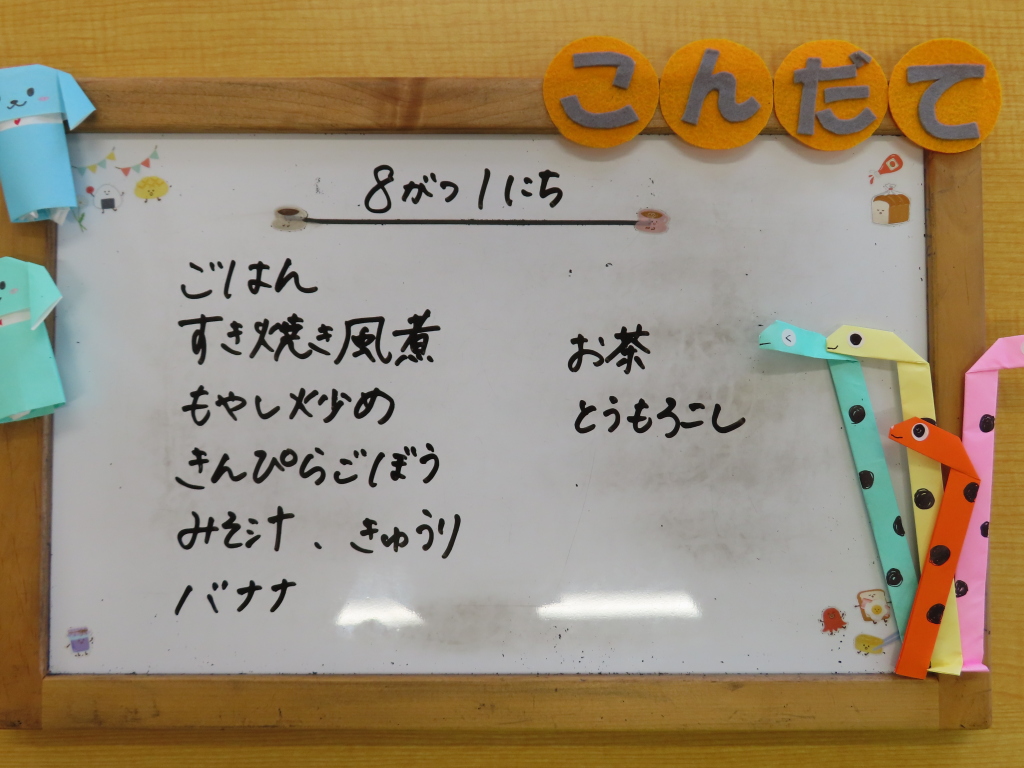 こんだて
8がつ1にち
ごはん
すき焼き風煮
もやし炒め
きんぴらごぼう
みそ汁、きゅうり
バナナ
お茶
とうもろこし